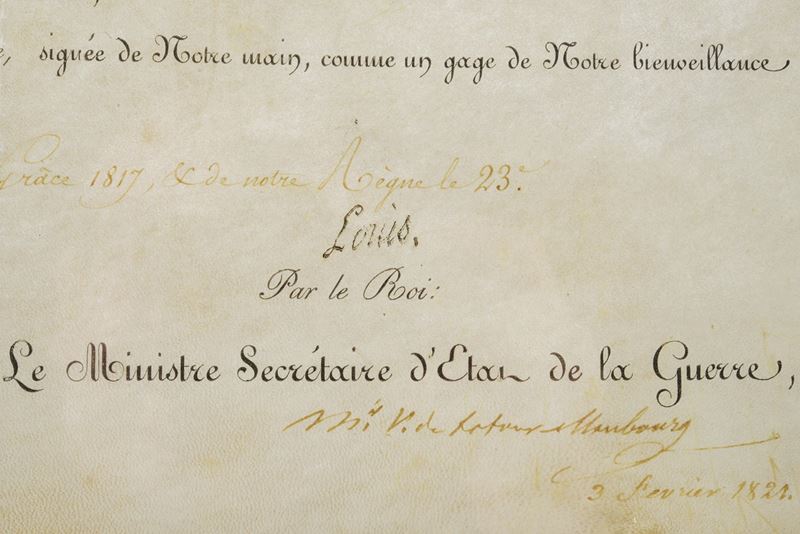 , signée de Notre main, comme un gage de Notre bienveillance
Grâce 1817, & de notre Règne le 23.e
Louis.
Par le Roi:
Le Ministre Secrétaire d'Etat de la Guerre,
Mis V. de Latour Maubourg
3 Fevrier 1821.